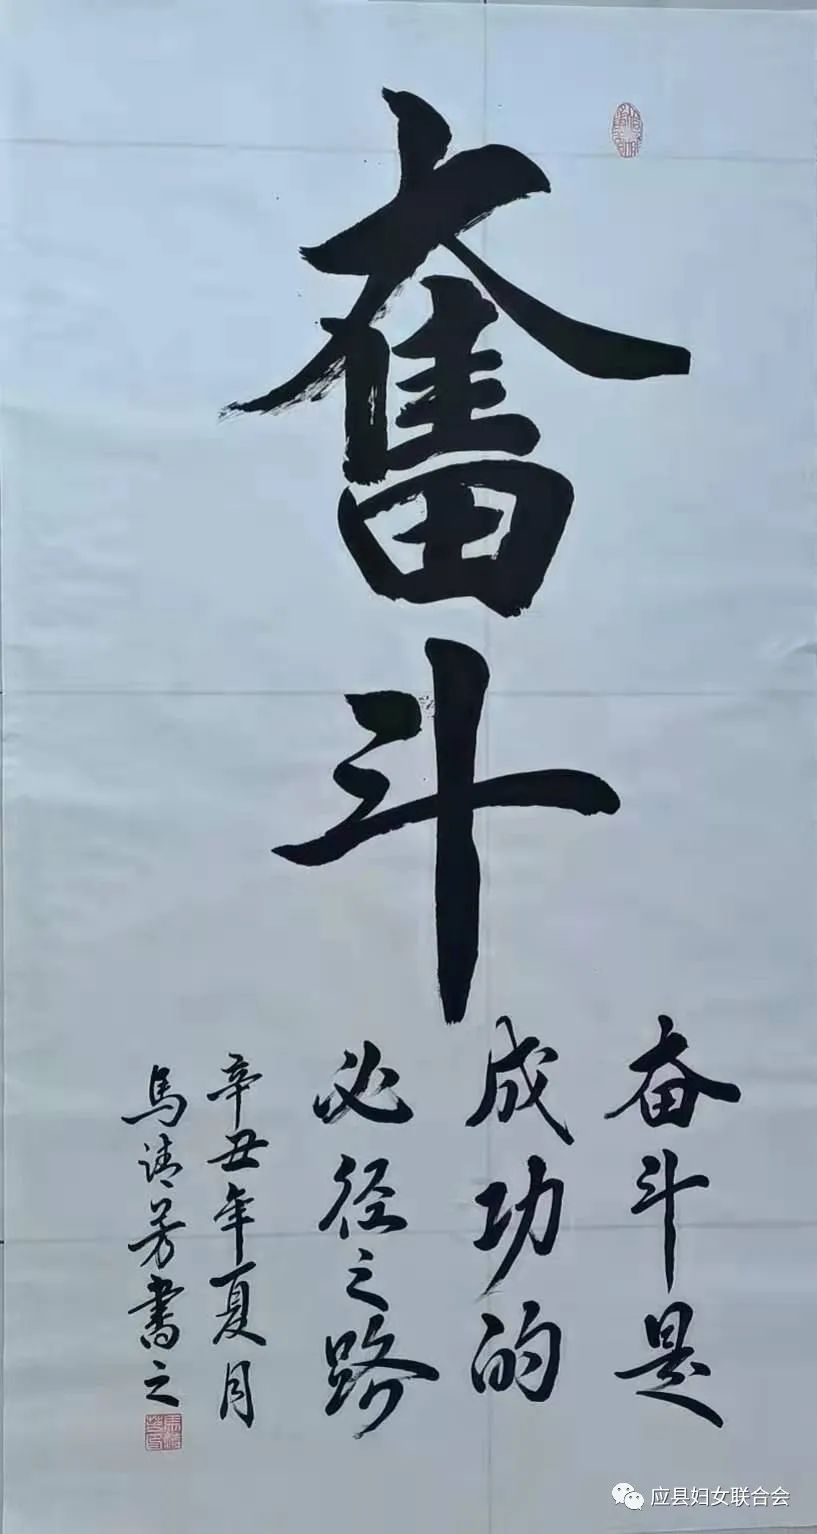 奮斗
奋斗是
成功的
必径之路
辛丑年夏月
馬清芳書之
应县妇女联合会